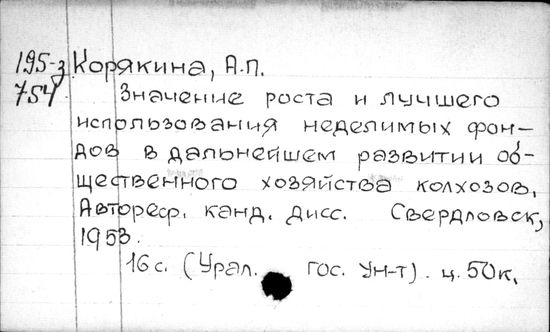 195-з Корякина, А.П.
754 Значение роста и лучшего
использования неделимых фон-
дов в дальнейшем развитии об-
щественного хозяйства колхозов.
Автореф. канд. дисс. Свердловск,
1953.
16 с. (Урал. гос. Ун-т). ц. 50 к.